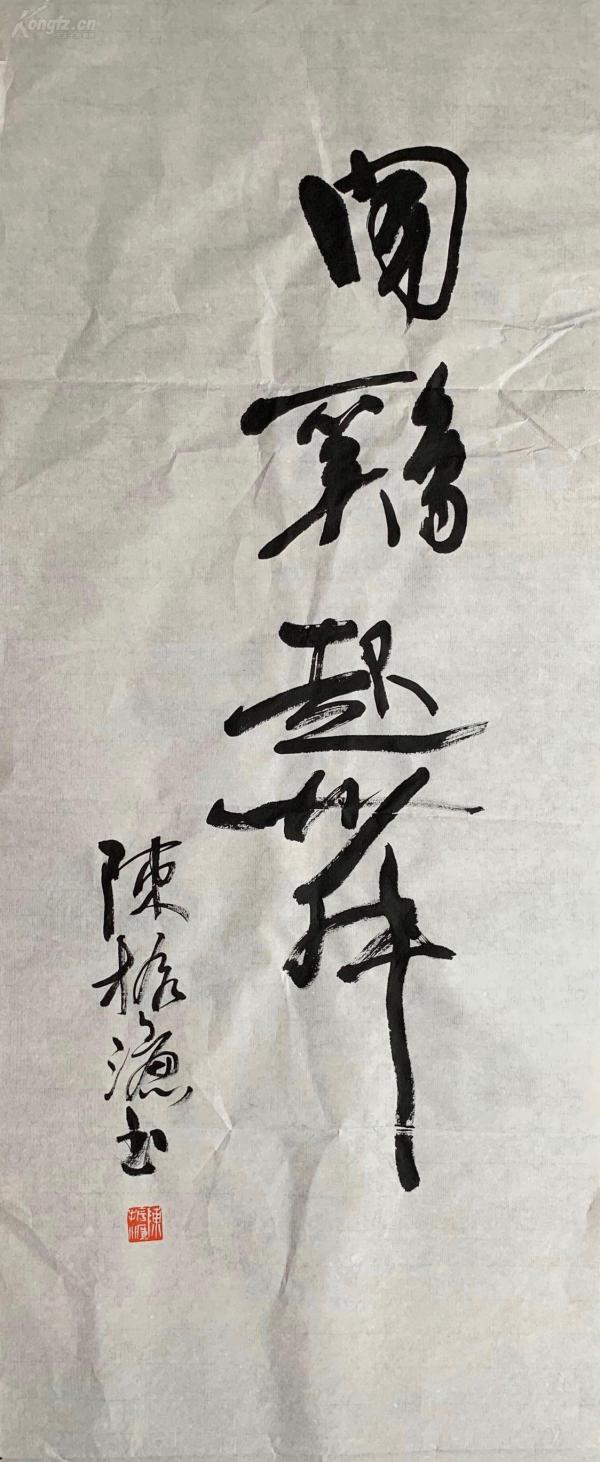 聞鷄起舞
陳振濂书
Kongfz.cn